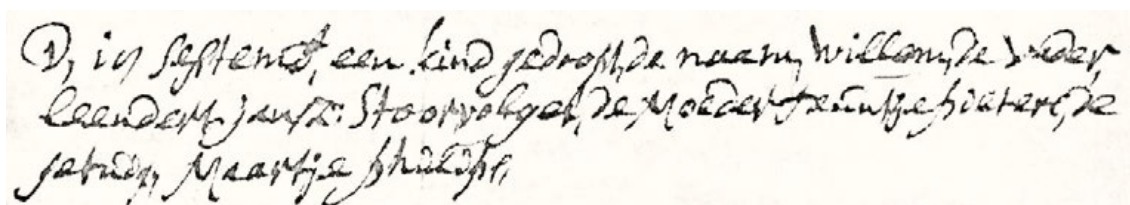 D, 19 Septemb, een kind gedoopt, de naam, Willem, de Vader,
leendert Jansz: Stoorvogel, de Moeder Teuntje pieters, de
getuijg, Maartje philips,